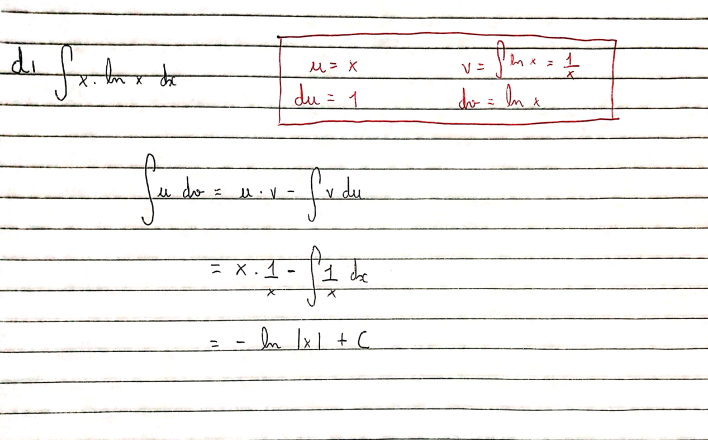 d) ∫ x · ln x dx
u = x
v = ∫ ln x = 1/x
du = 1
dv = ln x
∫ u dv = u · v - ∫ v du
= x · 1/x - ∫ 1/x dx
= - ln |x| + C